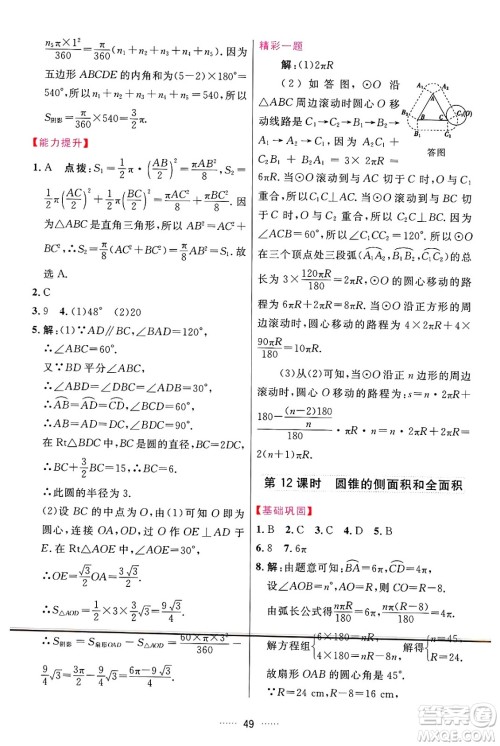 n₅π×1²/360 = π/360(n₁+n₂+n₃+n₄+n₅). 因为
五边形 ABCDE 的内角和为(5-2)×180°=
540°, 所以 n₁+n₂+n₃+n₄+n₅=540.
所以 S阴影=π/360×540=3/2π.
【能力提升】
1. A 点拨: S₁=1/2π·(AB/2)²=πAB²/8, S₂=
1/2π(AC/2)²+1/2π·(BC/2)²=πAC²/8+πBC²/8.
因为△ABC 是直角三角形, 所以 AB²=AC²+
BC², πAB²/8=πAC²/8+πBC²/8, 即 S₂=S₁. 故
选 A.
2. C
3. 9 4. (1)48° (2)20
5. 解: (1)∵AD∥BC, ∠BAD=120°,
∴∠ABC=60°.
又∵BD 平分∠ABC,
∴∠ABD=∠DBC=∠ADB=30°.
∴AB=AD=DC, ∠BCD=60°.
∴AB=AD=DC, ∠BDC=90°.
在 Rt△BDC 中, BC 是圆的直径, BC=2DC.
∴BC+3/2BC=15. ∴BC=6.
∴此圆的半径为 3.
(2)设 BC 的中点为 O, 由(1)可知点 O 即为
圆心, 连接 OA, OD, 过点 O 作 OE⊥AD 于点
E. 在 Rt△AOE 中, ∠AOE=30°,
∴OE=√3/2OA=3√3/2.
∴S△AOD=1/2×3×3√3/2=9/4√3.
∴S阴影=S扇形OAD-S△AOD=60×π×3²/360-
9/4√3=3π/2-9/4√3=6π-9√3/4.
精彩一题
解: (1)2πR
(2)如答图, ⊙O 沿
△ABC 周边滚动时 O 移
动线路是 C₁→C₂→A₁→
A₂→B₁→B₂→C₁.
答图
因为当⊙O 滚动与 AC 切于点 C 时, ⊙O 的
圆心在 C₂ 处, 所以 C₂C⊥AC. 同理, C₁C⊥BC.
又因为∠ACB=60°, 所以∠C₁CC₂=120°. ⊙O
在三个顶点处三段弧(A₁A₂, B₁B₂, C₁C₂)的总
长为 3×120πR/180=2πR, 圆心移动的路程为
6πR+2πR=8πR. 当⊙O 沿正方形的周边滚
动时, 同理可求得圆心移动的路程为 4×2πR+
4×90πR/180=10πR.
(3)从(1)(2)可知, 当⊙O 沿正 n 边形的周边
滚动时, 圆心移动的路程为: s=n·2πR+n·
180-(n-2)180/n/180πR=2nπR+n·2/nπR=
2(n+1)πR.
第 12 课时 圆锥的侧面积和全面积
【基础巩固】
1. B 2. C 3. C 4. D 5. B
6. 8 7. 6π
8. 解: 由题意可知: AB=6π, CD=4π,
设∠AOB=n, AO=R, 则 CO=R-8,
由弧长公式得 nπR/180=6π, nπ(R-8)/180=4π,
解方程组{6×180=nR, 4×180=nR-8n, 解得{n=45, R=24.
故扇形 OAB 的圆心角是 45°.
∵R=24 cm, R-8=16 cm,
49